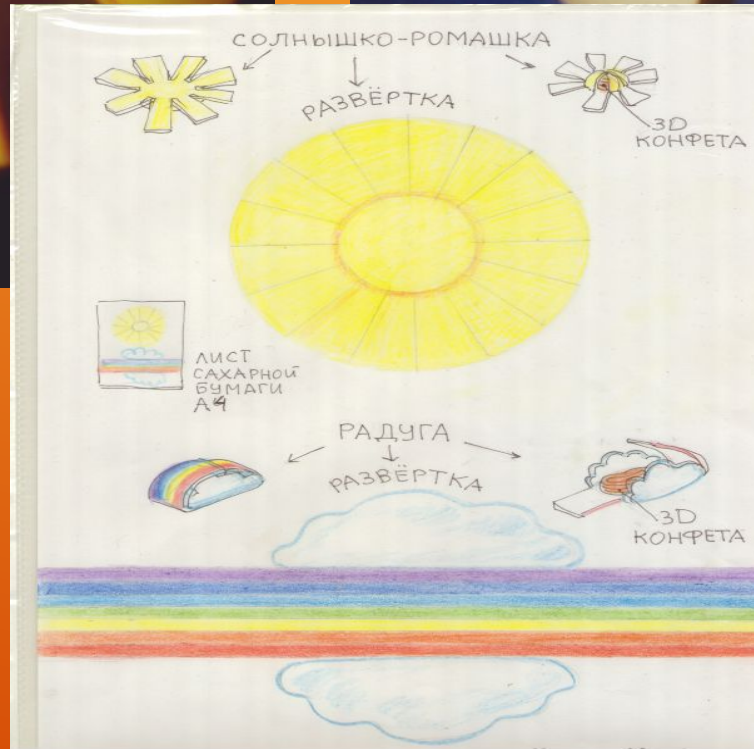 СОЛНЫШКО-РОМАШКА
РАЗВЁРТКА
3D
КОНФЕТА
ЛИСТ
САХАРНОЙ
БУМАГИ
А4
РАДУГА
РАЗВЁРТКА
3D
КОНФЕТА